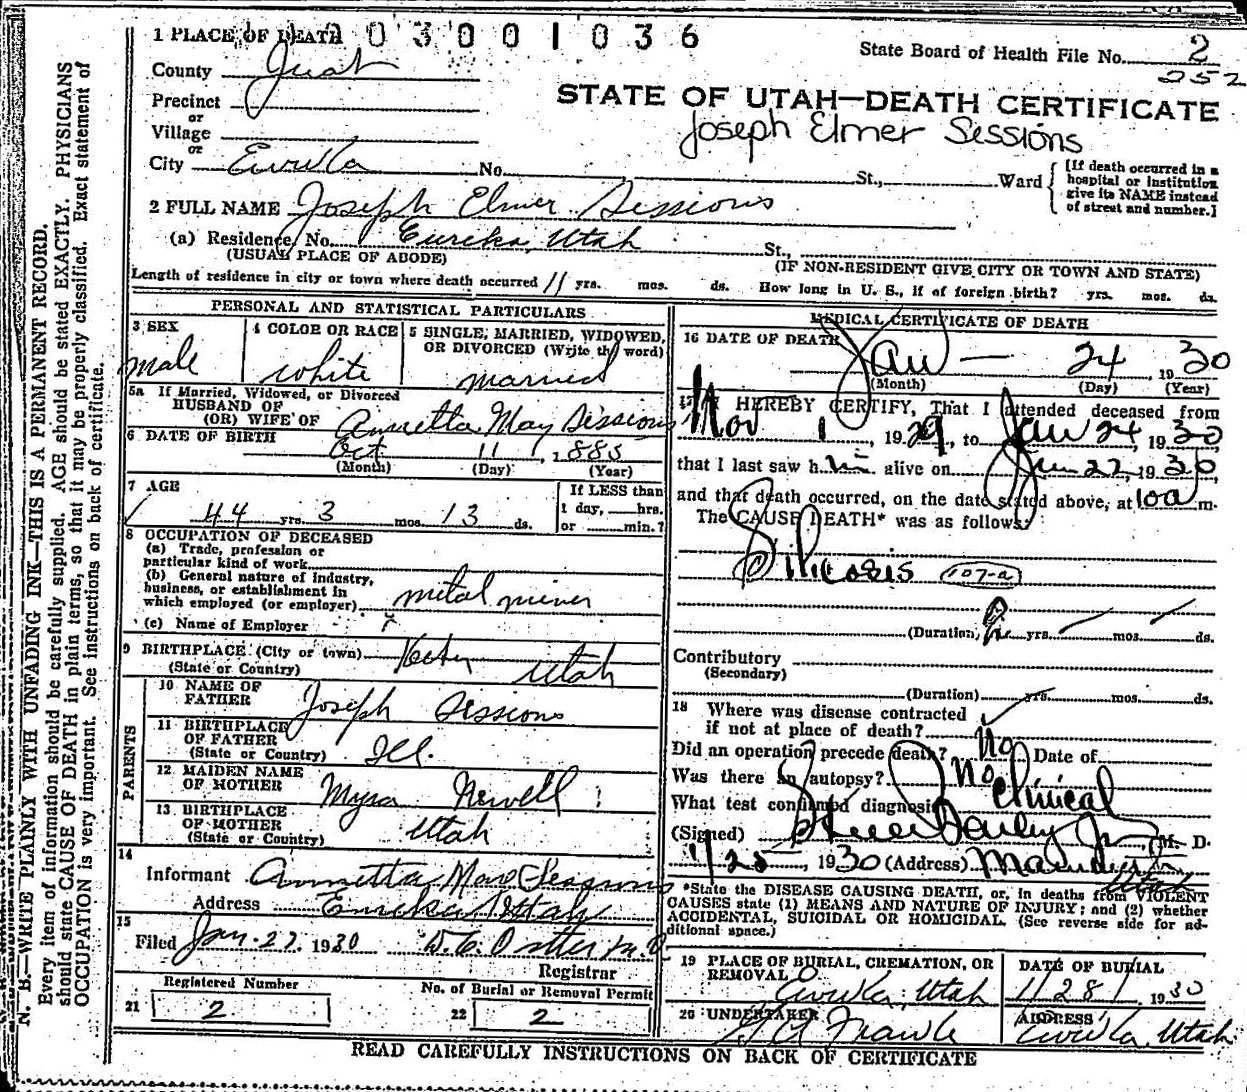 1 PLACE OF DEATH 0 0 3 0 0 1 0 3 6
State Board of Health File No. 2
252
County Juab
Precinct
or
Village
or
City Eureka No. St., Ward
[If death occurred in a
hospital or institution
give its NAME instead
of street and number.]
STATE OF UTAH—DEATH CERTIFICATE
Joseph Elmer Sessions
2 FULL NAME Joseph Elmer Sessions
(a) Residence, No. Eureka, Utah St.,
(USUAL PLACE OF ABODE) (IF NON-RESIDENT GIVE CITY OR TOWN AND STATE)
Length of residence in city or town where death occurred 11 yrs. mos. ds. How long in U. S., if of foreign birth? yrs. mos. ds.
PERSONAL AND STATISTICAL PARTICULARS
3 SEX
male
4 COLOR OR RACE
white
5 SINGLE, MARRIED, WIDOWED,
OR DIVORCED (Write the word)
married
5a If Married, Widowed, or Divorced
HUSBAND OF
(OR) WIFE OF Annetta May Sessions
6 DATE OF BIRTH
Oct 11, 1885
(Month) (Day) (Year)
7 AGE
44 yrs. 3 mos. 13 ds.
If LESS than
1 day, hrs.
or min.?
8 OCCUPATION OF DECEASED
(a) Trade, profession or
particular kind of work
(b) General nature of industry,
business, or establishment in
which employed (or employer) metal miner
(c) Name of Employer
9 BIRTHPLACE (City or town)
(State or Country) Utah
PARENTS
10 NAME OF
FATHER Joseph Sessions
11 BIRTHPLACE
OF FATHER
(State or Country) Ill.
12 MAIDEN NAME
OF MOTHER Myra Newell
13 BIRTHPLACE
OF MOTHER
(State or Country) Utah
14
Informant Annetta May Sessions
Address Eureka Utah
15
Filed Jan. 27 1930 M. D.
Registrar
Registered Number
21 2
No. of Burial or Removal Permit
22 2
MEDICAL CERTIFICATE OF DEATH
16 DATE OF DEATH
Jan — 24 1930
(Month) (Day) (Year)
17 I HEREBY CERTIFY, That I attended deceased from
Nov 1, 1929, to Jan 24 1930
that I last saw him alive on Jan 22, 1930,
and that death occurred, on the date stated above, at 10a m.
The CAUSE DEATH* was as follows:
Silicosis 107-a
(Duration) yrs. mos. ds.
Contributory
(Secondary)
(Duration) yrs. mos. ds.
18 Where was disease contracted
if not at place of death?
Did an operation precede death? No Date of
Was there an autopsy? No
What test confirmed diagnosis Clinical
(Signed) Steele Bailey Jr M. D.
1/25, 1930 (Address) Utah
*State the DISEASE CAUSING DEATH, or, in deaths from VIOLENT
CAUSES state (1) MEANS AND NATURE OF INJURY; and (2) whether
ACCIDENTAL, SUICIDAL OR HOMICIDAL. (See reverse side for ad-
ditional space.)
19 PLACE OF BURIAL, CREMATION, OR
REMOVAL
Eureka, Utah
DATE OF BURIAL
1/28/ 1930
20 UNDERTAKER
ADDRESS
Eureka, Utah
READ CAREFULLY INSTRUCTIONS ON BACK OF CERTIFICATE
N. B.—WRITE PLAINLY WITH UNFADING INK—THIS IS A PERMANENT RECORD.
Every item of information should be carefully supplied. AGE should be stated EXACTLY. PHYSICIANS
should state CAUSE OF DEATH in plain terms, so that it may be properly classified. Exact statement of
OCCUPATION is very important. See instructions on back of certificate.